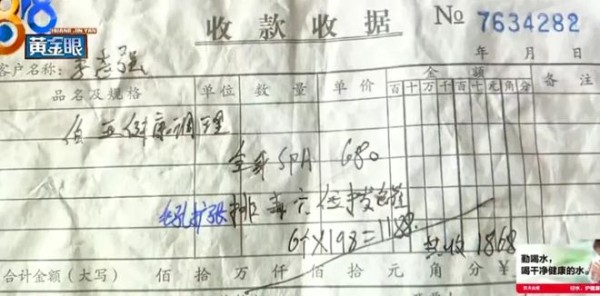 1818
HUANG JIN YAN
黄金眼
收款收据 № 7634282
年 月 日
客户名称：李志强
品名及规格 单位 数量 单价 金额 备注
百 十 万 千 百 十 元 角 分
健康调理
全身SPA 680
毛孔扩张排毒六位拔罐
6个×198=1188 共收1868
合计金额（大写） 佰 拾 万 仟 佰 拾 元 角 分 ¥
勤喝水，
喝干净健康的水。